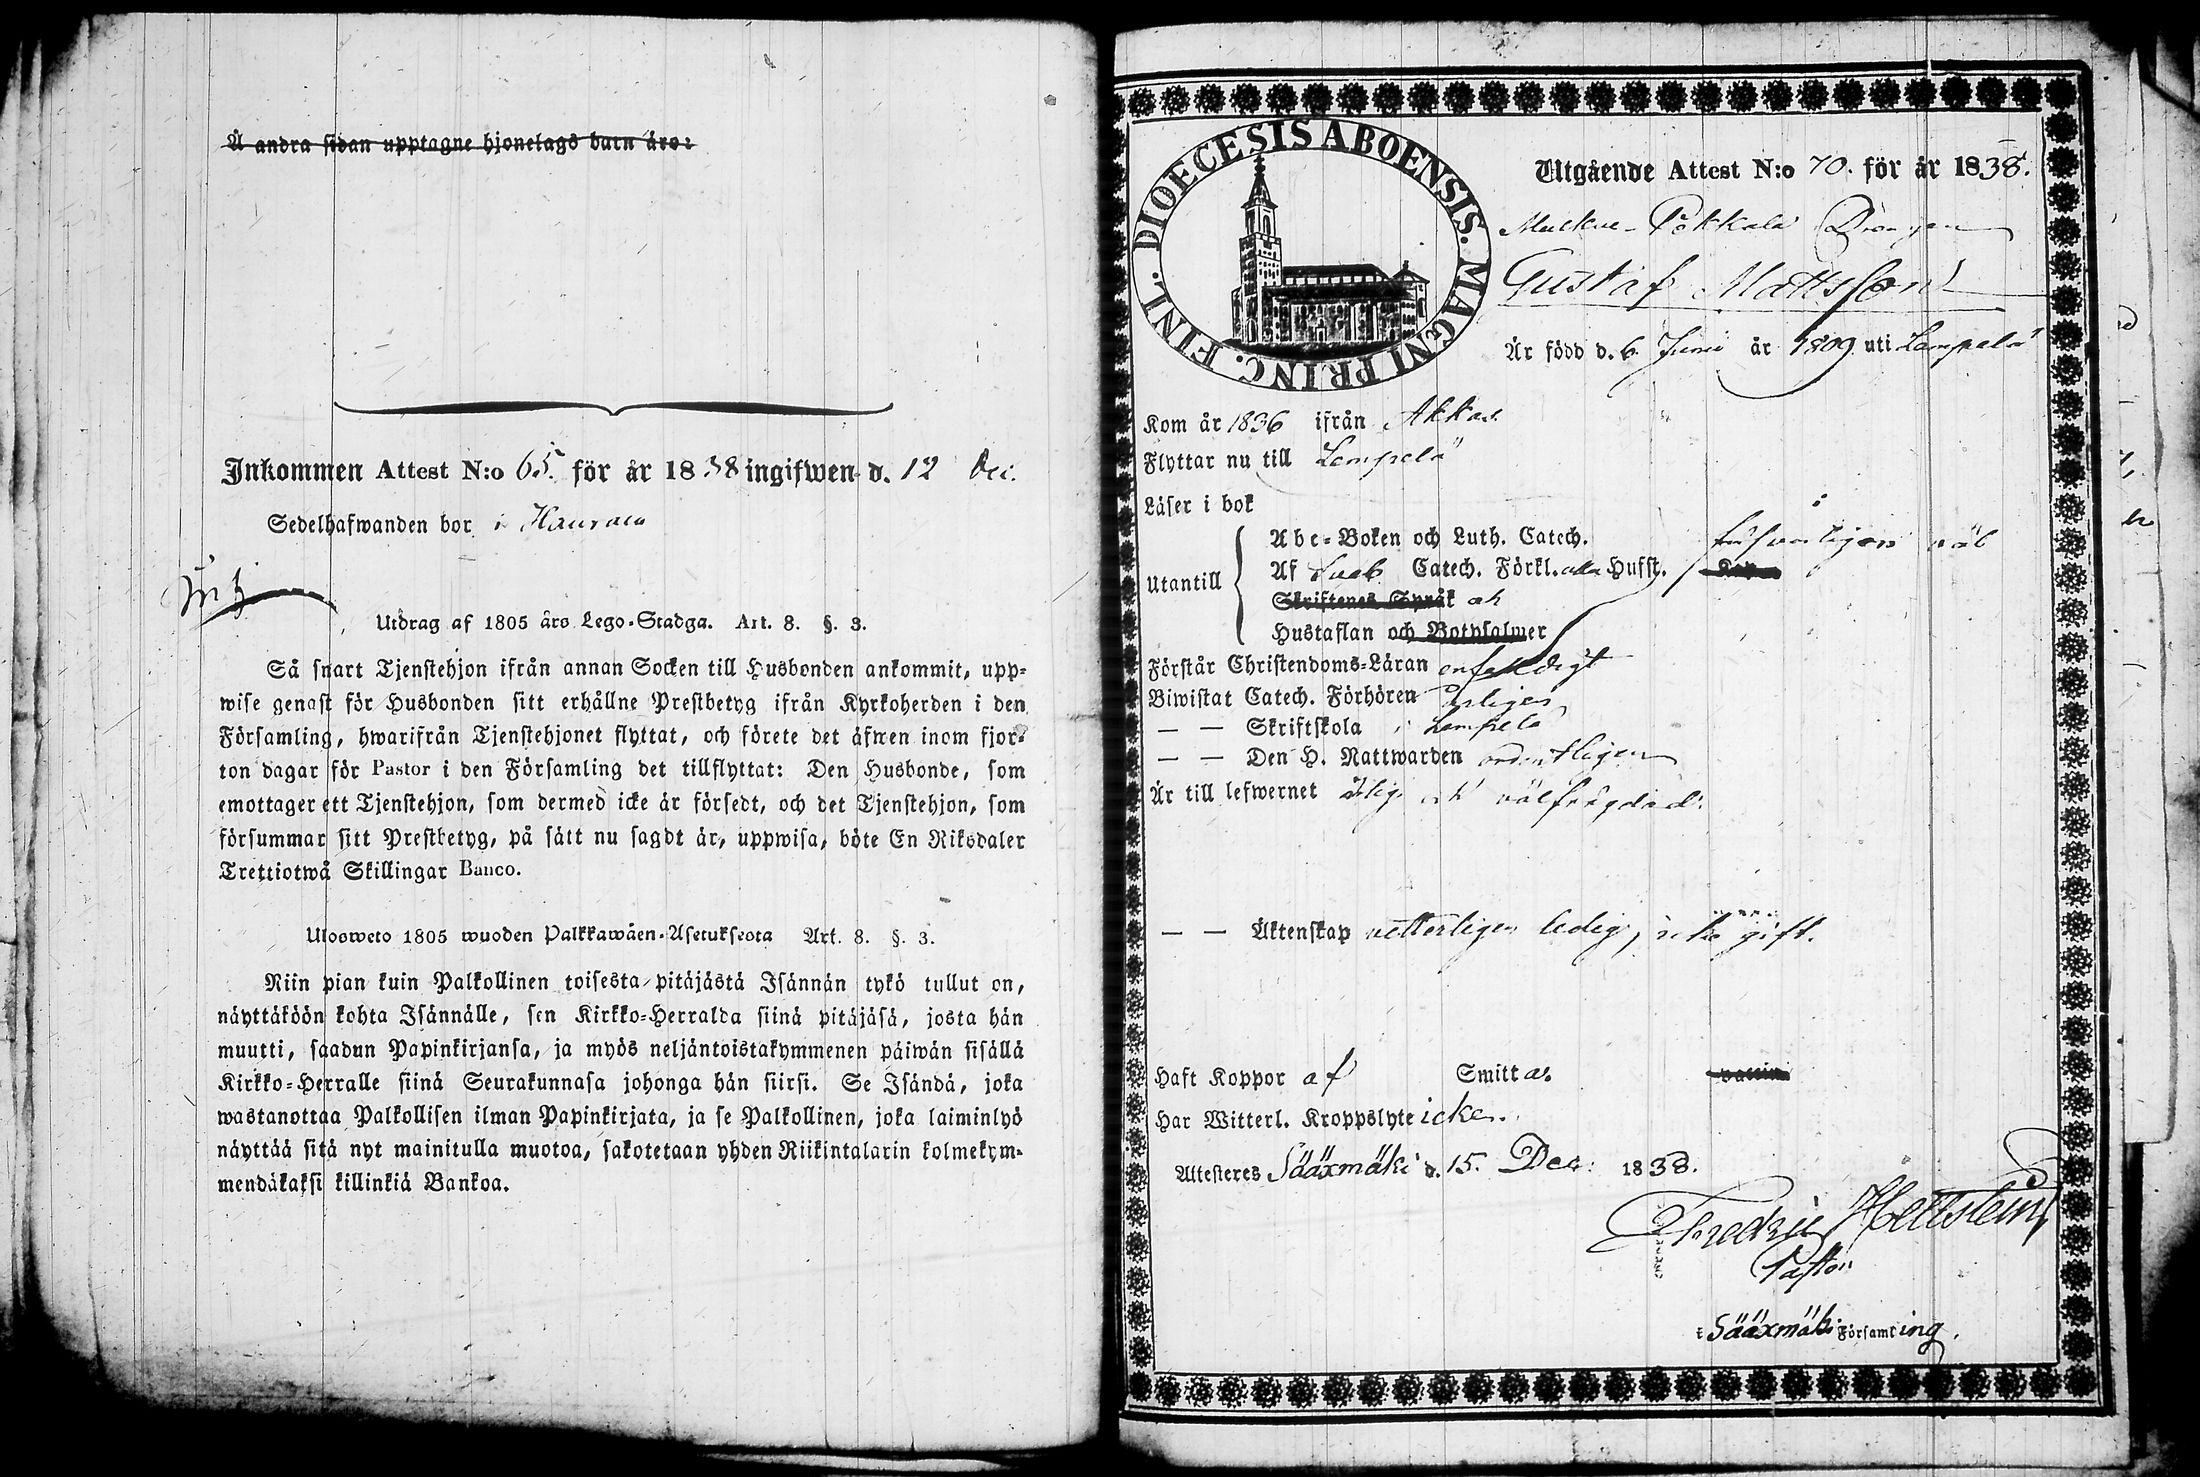 Å andra sidan upptagne hjonelags barn äro:
Inkommen Attest N:o 65. för år 1838 ingifwen d. 12 Dec.
Sedelhafwanden bor i
Utdrag af 1805 års Lego-Stadga. Art. 8. §. 3.
Så snart Tjenstehjon ifrån annan Socken till Husbonden ankommit, upp-
wise genast för Husbonden sitt erhållne Prestbetyg ifrån Kyrkoherden i den
Församling, hwarifrån Tjenstehjonet flyttat, och förete det äfwen inom fjor-
ton dagar för Pastor i den Församling det tillflyttat: Den Husbonde, som
emottager ett Tjenstehjon, som dermed icke är försedt, och det Tjenstehjon, som
försummar sitt Prestbetyg, på sätt nu sagdt är, uppwisa, böte En Riksdaler
Trettiotwå Skillingar Banco.
Ulosweto 1805 wuoden Palkkawäen-Asetuksesta Art. 8. §. 3.
Niin pian kuin Palkollinen toisesta pitäjästä Isännän tykö tullut on,
näyttäköön kohta Isännälle, sen Kirkko-Herralda siinä pitäjäsä, josta hän
muutti, saadun Papinkirjansa, ja myös neljäntoistakymmenen päiwän sisällä
Kirkko-Herralle siinä Seurakunnasa johonga hän siirsi. Se Isändä, joka
wastanottaa Palkollisen ilman Papinkirjata, ja se Palkollinen, joka laiminlyö
näyttää sitä nyt mainitulla muotoa, sakotetaan yhden Riikintalarin kolmekym-
mendäkaksi killinkiä Bankoa.
DIOECESIS ABOENSIS. MAGNI PRINC. FINL.
Utgående Attest N:o 70. för år 1838.
Pokkala Drängen
Gustaf Mattsson
Är född d. 6 Junii år 1809 uti Lempälä
Kom år 1836 ifrån Akkas
Flyttar nu till Lempelä
Läser i bok
Abc-Boken och Luth. Catech. försvarligen väl
Utantill
Af Sveb. Catech. Förkl. Hufst.
Skriftenes Språk och
Hustaflan och Botpsalmer
Förstår Christendoms-Läran enfaldigt
Biwistat Catech. Förhören årligen
— — Skriftskola i Lempelä
— — Den H. Nattwarden ordentligen
Är till lefwernet ärlig och välfrägdad.
— — Äktenskap vetterligen ledig, icke gift.
Haft Koppor af Smittas vaccin
Har Witterl. Kroppslyte icke.
Attesteres Sääxmäki d. 15. Dec: 1838.
Fredric Hellstein
Pastor
i Sääxmäki Församling.